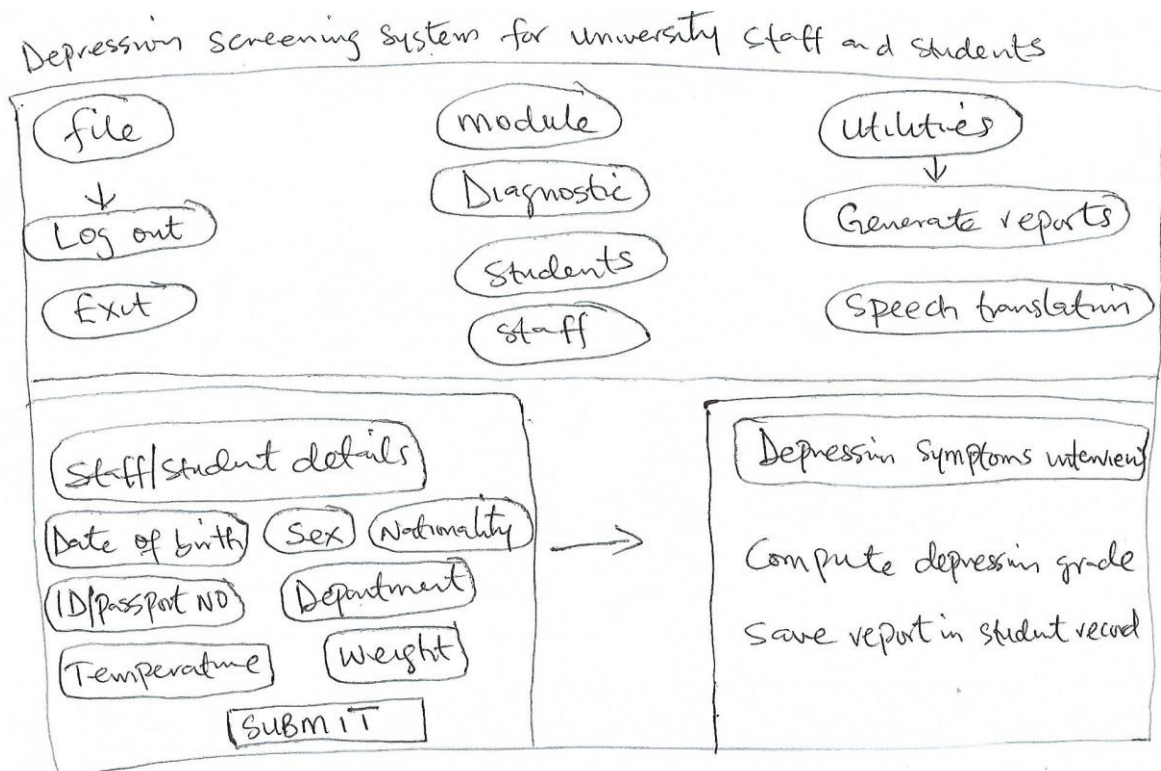 Depression screening system for university staff and students
file
module
utilities
Log out
Diagnostic
Generate reports
Exit
Students
Speech translation
staff
Staff/student details
Date of birth
Sex
Nationality
ID/passport NO
Department
Temperature
Weight
SUBMIT
Depression Symptoms interview
Compute depression grade
Save report in student record